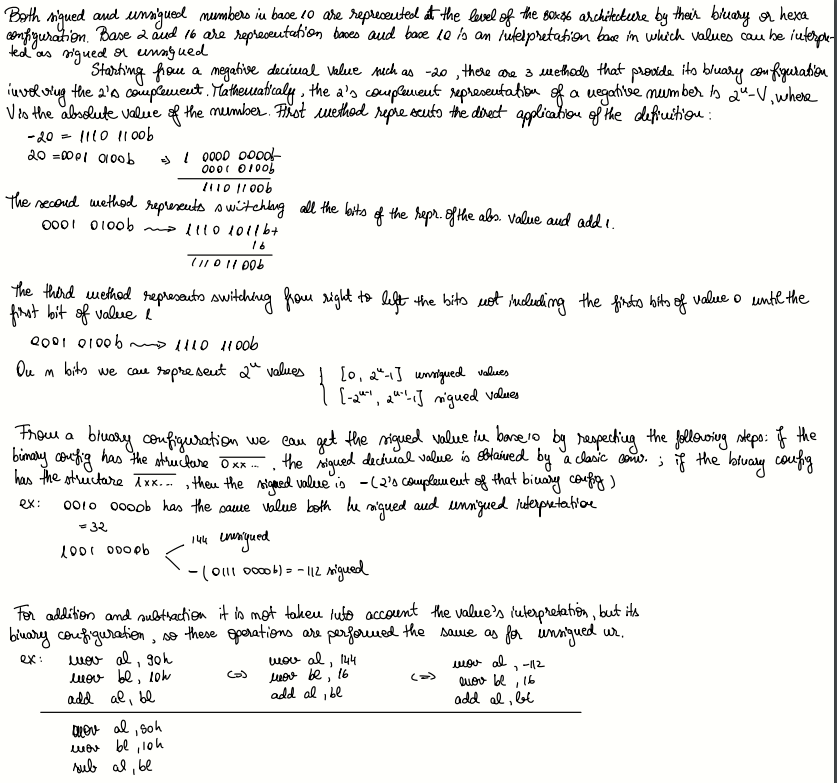 Both signed and unsigned numbers in base 10 are represented at the level of the 80x86 architecture by their binary or hexa
configuration. Base 2 and 16 are representation bases and base 10 is an interpretation base in which values can be interpre-
ted as signed or unsigned
Starting from a negative decimal value such as -20, there are 3 methods that provide its binary configuration
involving the 2's complement. Mathematicaly, the 2's complement representation of a negative number is 2ⁿ-V, where
V is the absolute value of the number. First method represents the direct application of the definition:
-20 = 1110 1100b
20 = 0001 0100b ⇒ 1 0000 0000b-
0001 0100b
1110 1100b
The second method represents switching all the bits of the repr. of the abs. value and add 1.
0001 0100b ⟿ 1110 1011b+
1b
1110 1100b
The third method represents switching from right to left the bits not including the firsts bits of value 0 until the
first bit of value 1
0001 0100b ⟿ 1110 1100b
On n bits we can represent 2ⁿ values { [0, 2ⁿ-1] unsigned values
[-2ⁿ⁻¹, 2ⁿ⁻¹-1] signed values
From a binary configuration we can get the signed value in base 10 by respecting the following steps: if the
binary config has the structure 0xx..., the signed decimal value is obtained by a clasic conv.; if the binary config
has the structure 1xx..., then the signed value is -(2's complement of that binary config)
ex: 0010 0000b has the same value both in signed and unsigned interpretation
=32
1001 0000b < 144 unsigned
-(0111 0000b) = -112 signed
For addition and subtraction it is not taken into account the value's interpretation, but its
binary configuration, so these operations are performed the same as for unsigned nr.
ex: mov al, 90h mov al, 144 mov al, -112
mov bl, 10h <=> mov bl, 16 <=> mov bl, 16
add al, bl add al, bl add al, bl
mov al, 90h
mov bl, 10h
sub al, bl